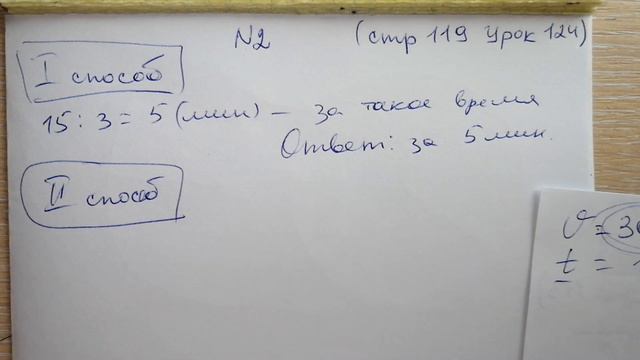 N2 (стр 119 Урок 124)
I способ
15 : 3 = 5 (мин) – за такое время
Ответ: за 5 мин.
II способ
v = 30
t =